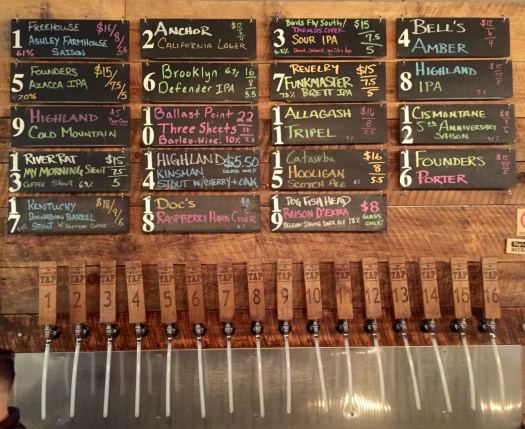 1 FREEHOUSE $16/9/5
ASHLEY FARMHOUSE
6.1% SAISON
2 ANCHOR
CALIFORNIA LAGER
3 Birds Fly South/ $15
THOMAS CREEK 7.5
SOUR IPA 5
4 BELL'S
AMBER
5 FOUNDERS $15/
AZACCA IPA 7.5
7.0% /5
6 Brooklyn 6.7% 16
Defender IPA 8
5.5
7 REVELRY $15
FUNKMASTER 7.5
BRETT IPA 5
8 HIGHLAND
IPA
9 HIGHLAND $5
COLD MOUNTAIN
10 Ballast Point 22
Three Sheets 11
Barley-Wine, 10% 7.5
11 ALLAGASH $16
TRIPEL
12 CISMONTANE
5th ANNIVERSARY
SAISON
13 RIVER RAT $15
MY MORNING STOUT 7.5
COFFEE STOUT 5
14 HIGHLAND $5.50
KINSMAN GLASS ONLY
STOUT W/CHERRY + OAK
15 Catawba $16
HOOLIGAN 8
SCOTCH ALE 5.5
16 FOUNDERS
PORTER
17 KENTUCKY $18/9/6
BOURBON BARREL
STOUT
18 DOC'S
RASPBERRY HARD CIDER
19 DOG FISH HEAD $8
RAISON D'EXTRA GLASS
BELGIAN STRONG DARK ALE 18% ONLY!
TAP TAP TAP TAP TAP TAP TAP TAP TAP TAP TAP TAP TAP TAP TAP TAP
1 2 3 4 5 6 7 8 9 10 11 12 13 14 15 16